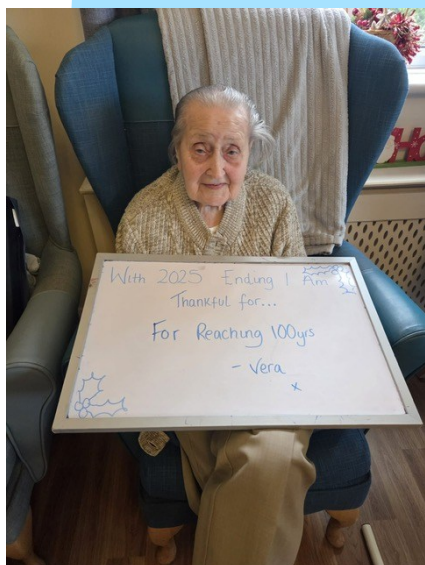 With 2025 Ending I Am
Thankful for...
For Reaching 100yrs
- Vera
x
Ho